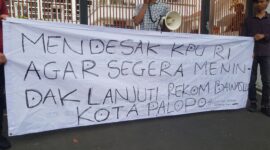 MENDESAK KPU RI
AGAR SEGERA MENIN-
DAK LANJUTI REKOM BAWASLU
KOTA PALOPO